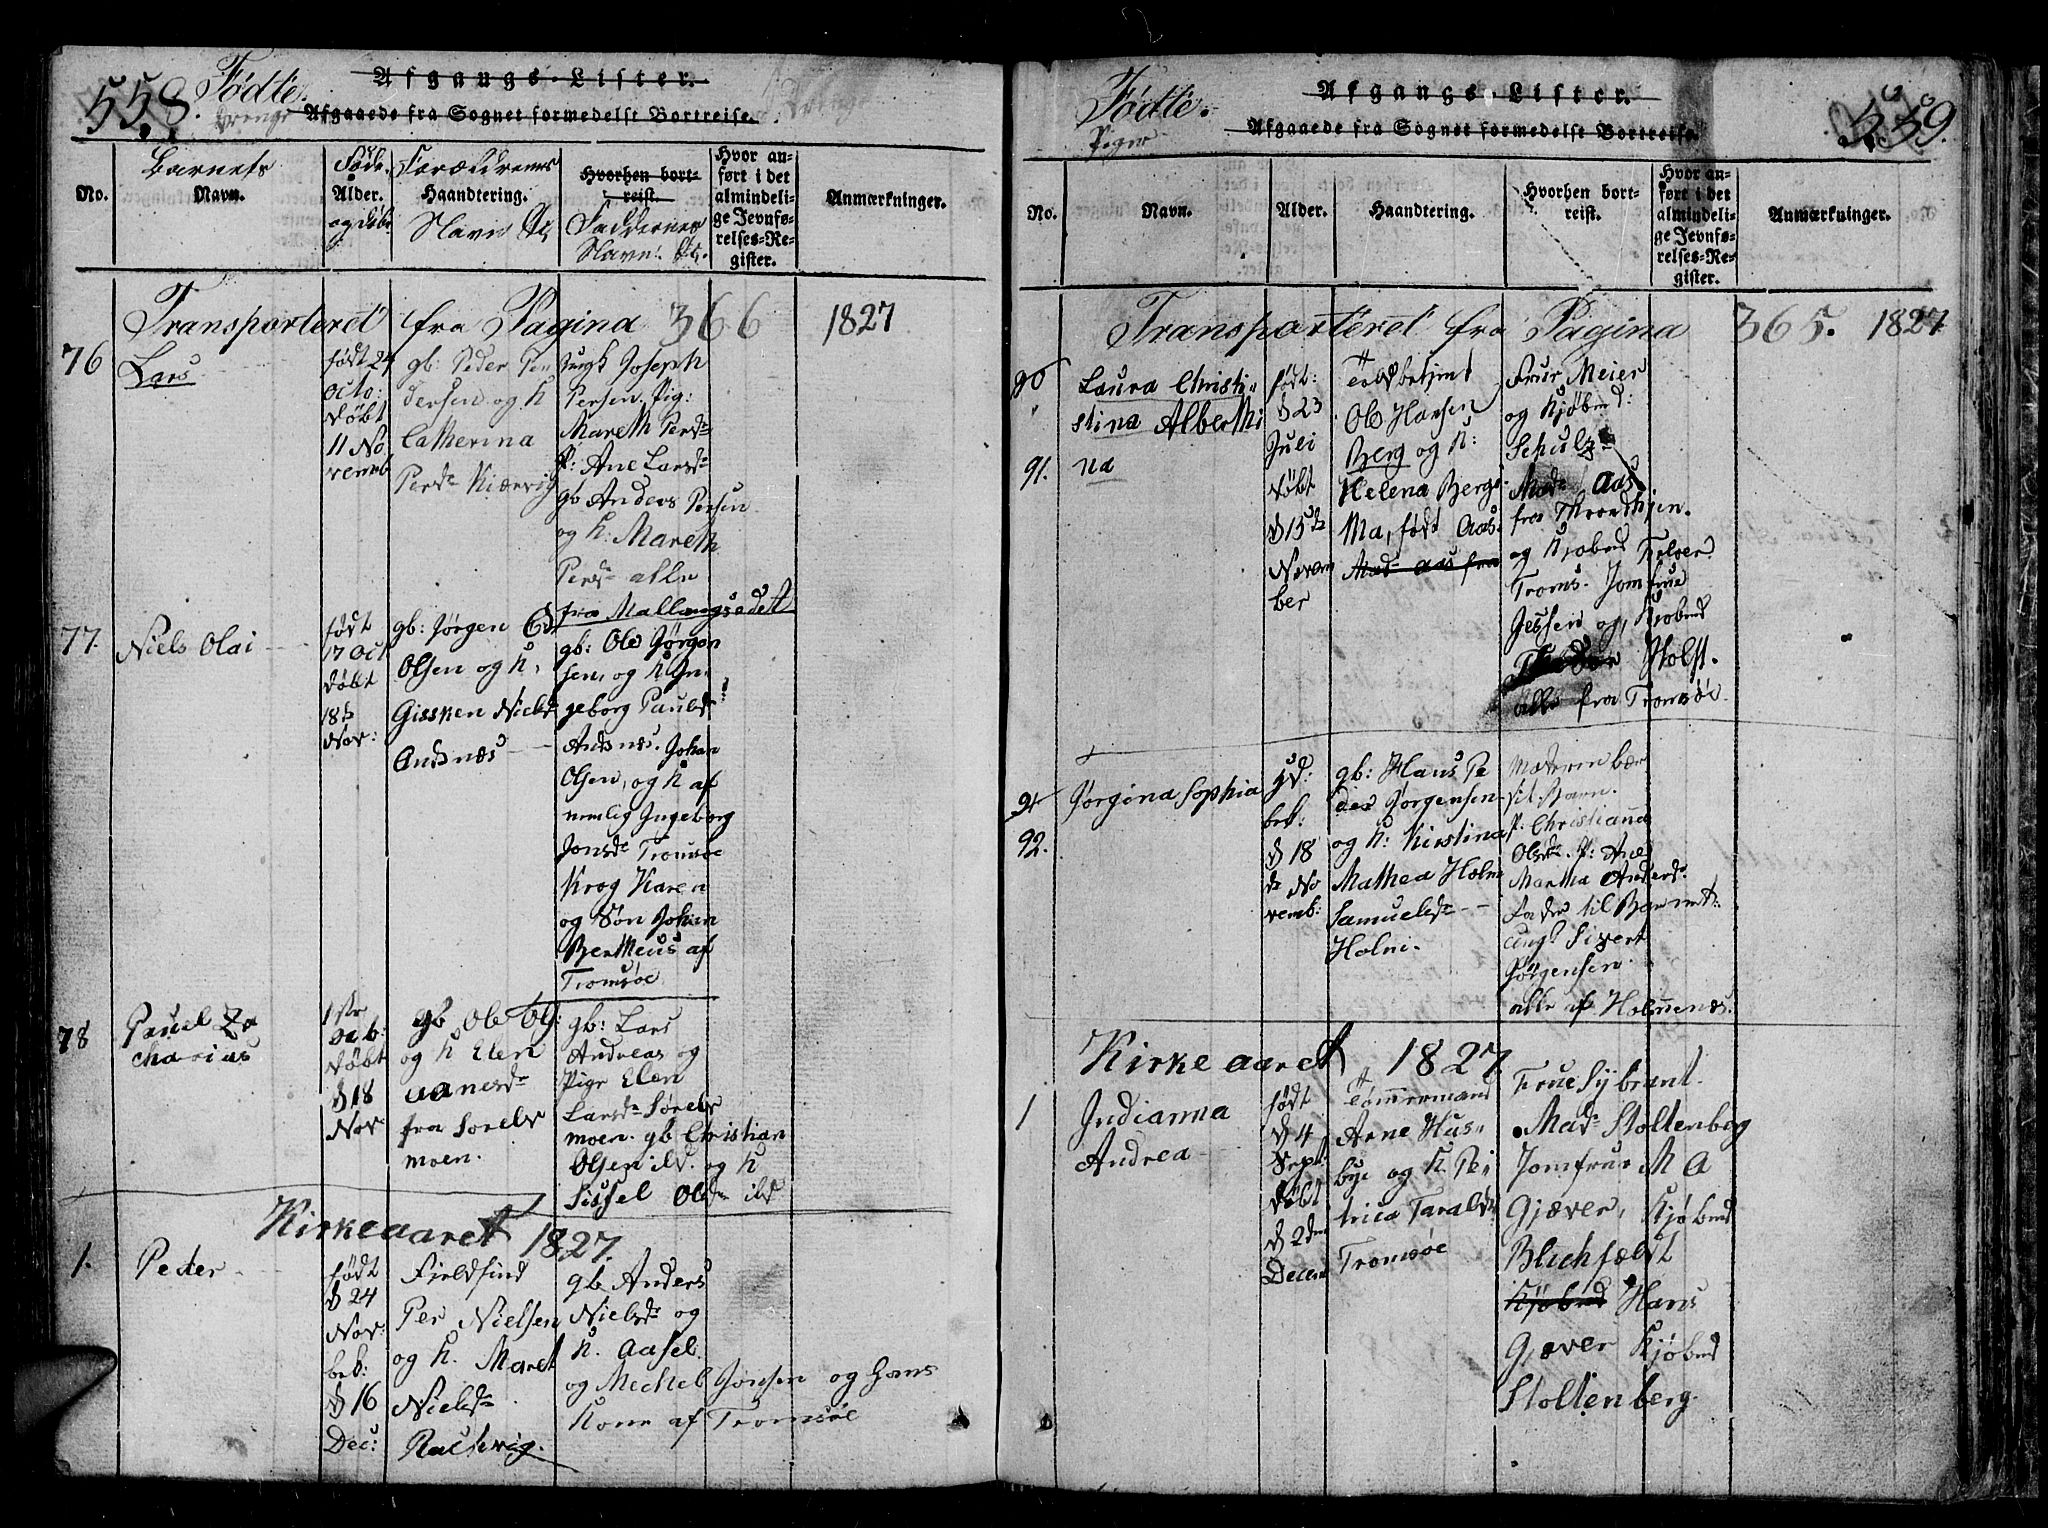 558. Fødte.
Drenge
Afgangs-Lister.
Afgaaede fra Sognet formedelst Bortreise.
No.
Barnets
Navn.
Føds.
Alder.
og Døbt
Forældrenes
Haandtering.
Navn &c
Hvorhen bort-
reist.
Faddernes
Navn. &c.
Hvor an-
ført i det
almindeli-
ge Jevnfø-
relses-Re-
gister.
Anmærkninger.
Transporteret fra Pagina 366 1827
76
Lars
født 24
Octo:
døbt
11 No
vemb
gb: Peder Pe
dersen og K
Catherina
Persdr Kiærvig
Ungk Joseph
Persen. Pig:
Mareth Persdr
P: Ane Larsdr
gb Anders Persen
og K: Mareth
Persdr alle
fra Mallangseidet
77.
Niels Olai
født
17 Oct
døbt
18d
Nov:
gb: Jørgen Ed
Olsen og K.
Gissken Nielsd
Andsnæs
gb: Ole Jørgen
sen, og K Jn
geborg Paulsd
Andsnæs. Johan
Olsen, og K af
nemlig Jngeborg
Jonsdr Tromsøe
Krog Karen
og Søn Johan
Bertheus af
Tromsøe
78
Pauel Za
charias
døbt
d 18
Nov
gb Ole Ols:
og K Elen
fra Sorels
moen.
gb: Lars
Andreas og
Pige Elen
Larsdr Sørels
moen. gb Christian
Olsen ibd. og K
Sissel Olsdr ibd
Kirkeaaret 1827.
1.
Peder
født
d 24
Nov:
beb:
d 16
Dec:
Fjeldfind
Per Nielsen
og K. Maret
Nielsdr
gb Anders
Nielsdr og
K. Aasel
og Mechel Jonsen og hans
Kone af Tromsøe
Fødte.
Piger
Afgangs-Lister.
Afgaaede fra Sognet formedelst Bortreise.
559.
No.
Navn.
Alder.
Haandtering.
Hvorhen bort-
reist.
Hvor an-
ført i det
almindeli-
ge Jevnfø-
relses-Re-
gister.
Anmærkninger.
Transporteret fra Pagina 365. 1827
90
91.
Laura Christi-
stina Alberthi
na
født:
d 23
Juli
døbt
d 15de
Novem
ber
Toldbetjent
Ole Hansen
Berg og K:
Helena Berge
Ma, født Aas.
Mad. Aas fra
Frue Meier
og Kjøbmd:
Schulz
Madm Aas
fra Throndhjem.
og Kjøbmd
Troms. Jomfrue
Jessen og Kjøbmd
Holst.
alle fra Tromsøe
91
92.
Jørgina Sophia
d 18
de No
vemb:
gb: Hans Pe
der Jørgensen
og K: Kirstina
Mathea Holm
Samuelsdr
Holm.
Moderen bær
sit Barn.
P. Christianna
Olsdr. P: Ane
Martha Andersd.
Fader til Barnet:
ungk Sivert
Jørgensen
alle af Holmenæs.
Kirkeaaret 1827
1
Jndianna
Andrea
født
d 4
Sept.
døbt
d 2den
Decem
Tømmermand
Arne Hus-
bye og K. Pe
trica Taralds
Tromsøe
Frue Sybrant.
Madm Stoltenberg
Jomfrue M A
Gjæver, Kjøbmd
Blichfeldt
Kjøbmd Hans
Gjæver Kjøbmd
Stoltenberg.